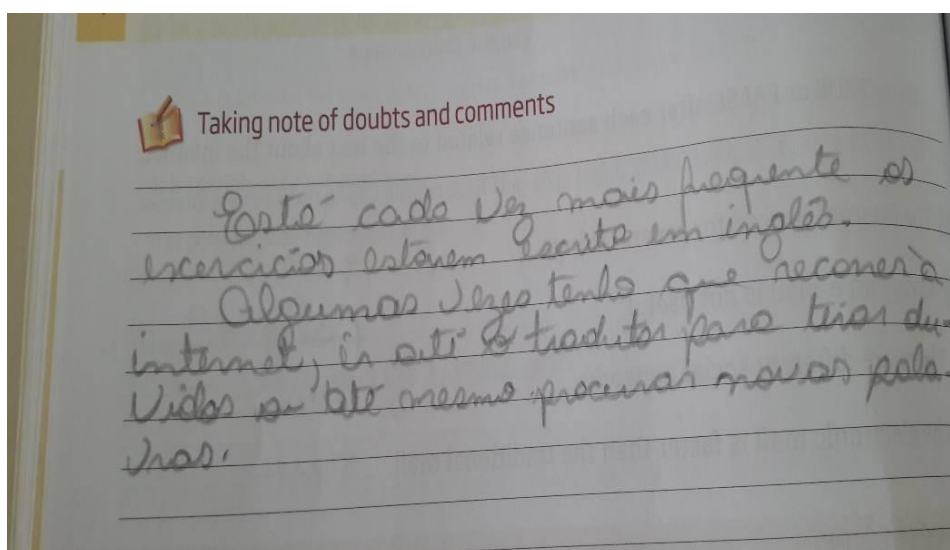 Taking note of doubts and comments
Está cada vez mais frequente os
excercicios estarem escrito em inglês.
Algumas vezes tenho que recorrer à
internet, ir até o tradutor para tirar du-
vidas ou até mesmo procurar novas pala-
vras.